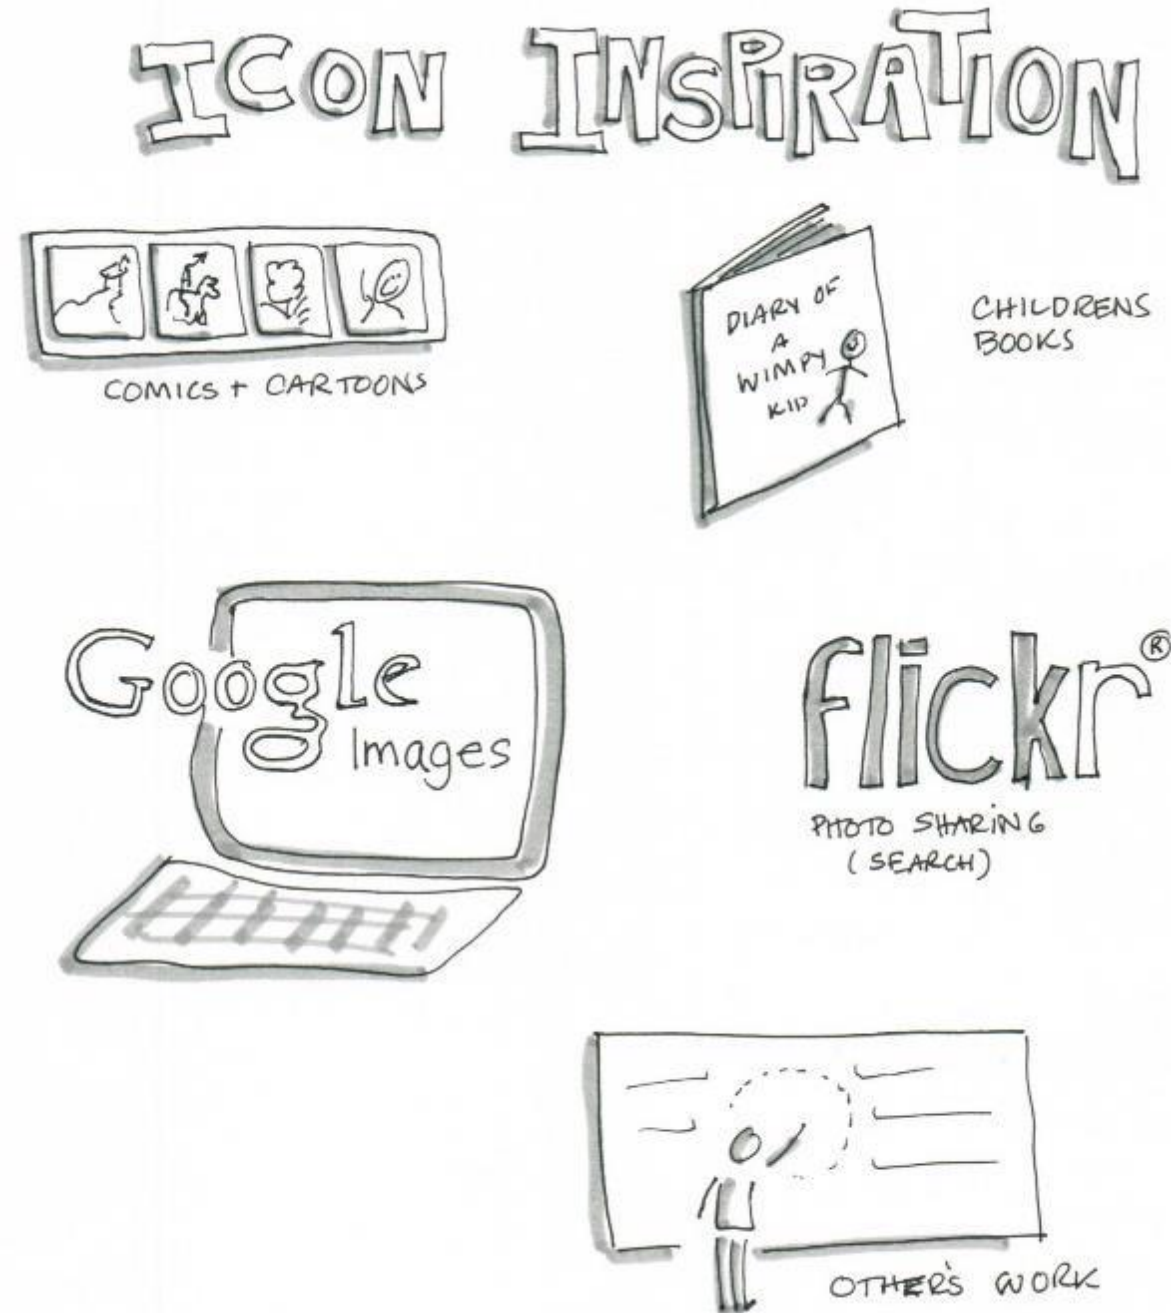 ICON INSPIRATION
COMICS + CARTOONS
DIARY OF
A
WIMPY
KID
CHILDRENS
BOOKS
Google
Images
flickr®
PHOTO SHARING
(SEARCH)
OTHER'S WORK